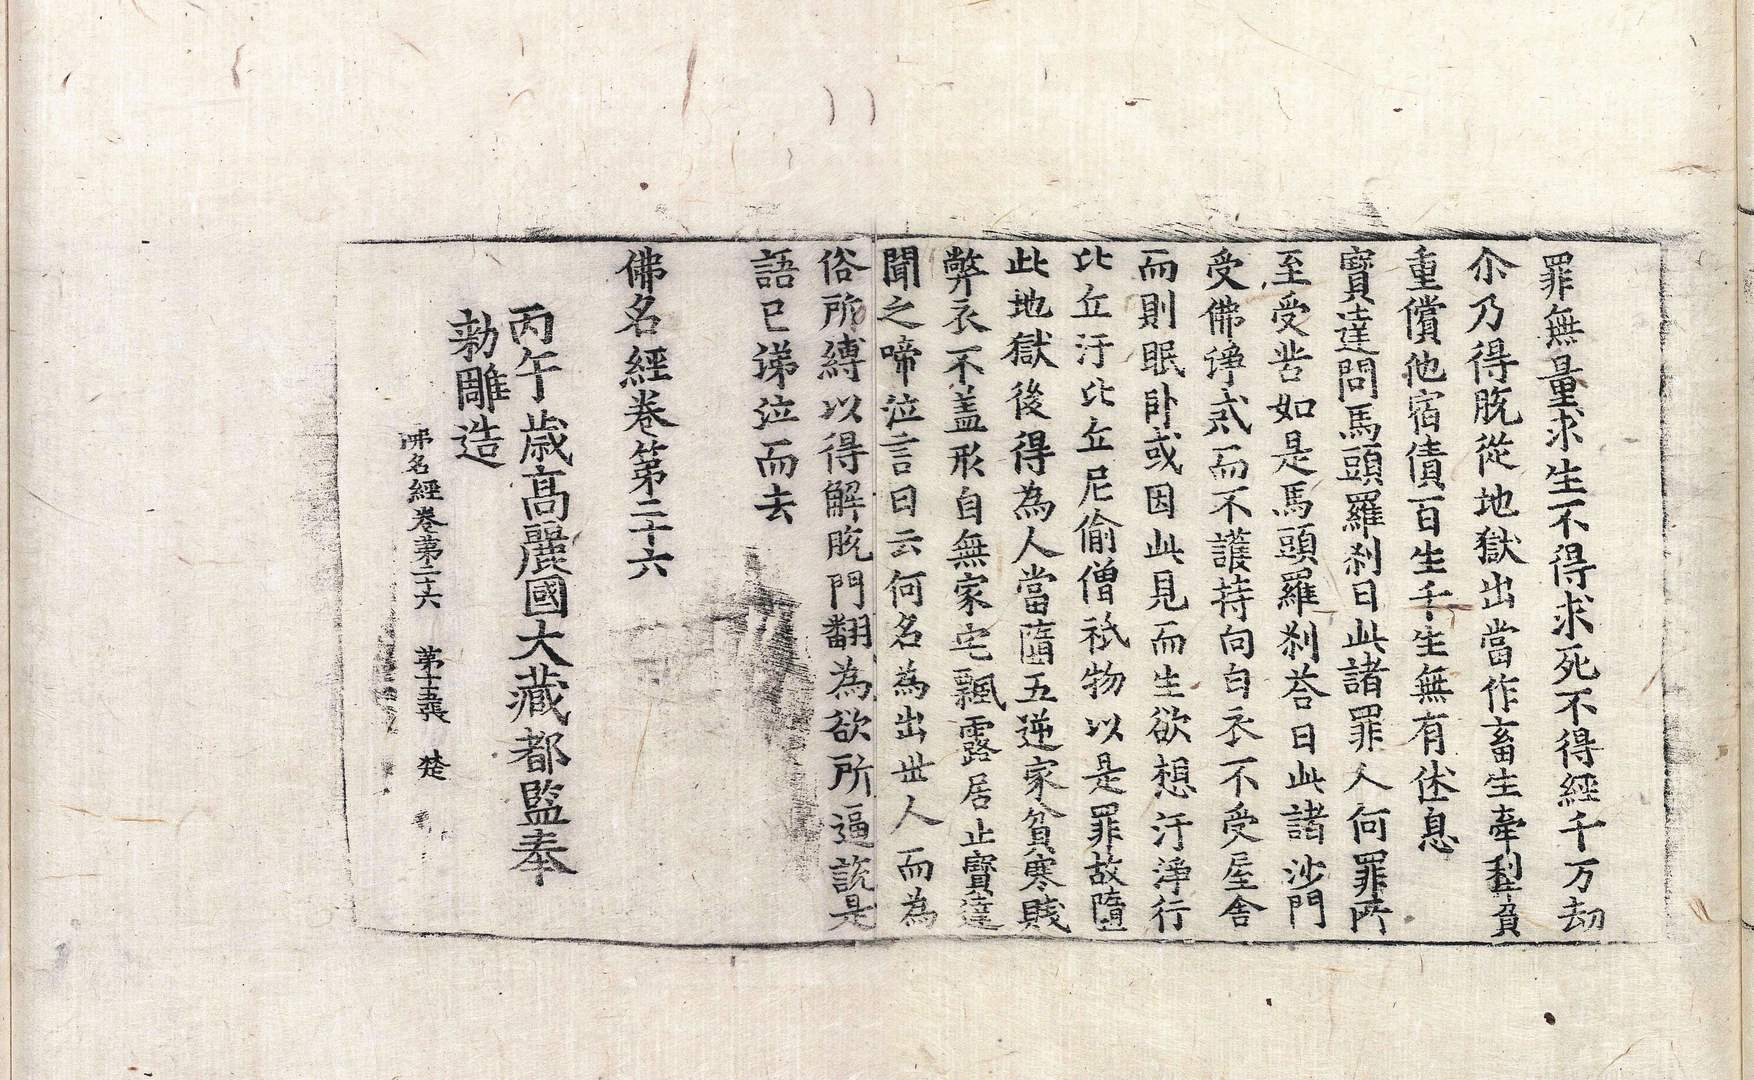 罪無量求生不得求死不得經千万劫
尒乃得脫從地獄出當作畜生牽犁負
重償他宿債百生千生無有休息
寶達問馬頭羅刹曰此諸罪人何罪所
至受苦如是馬頭羅刹荅曰此諸沙門
受佛淨戒而不護持向白衣不受屋舍
而則眠卧或因此見而生欲想汙淨行
比丘汙比丘尼偷僧祇物以是罪故墮
此地獄後得為人當墮五逆家貧寒賤
弊衣不盖形自無家宅飄露居止寶達
聞之啼泣言曰云何名為出世人而為
俗所縛以得解脫門翻為欲所逼說是
語已涕泣而去
佛名經卷第二十六
丙午歳高麗國大藏都監奉
勑雕造
佛名經卷第二十六　第十五張　楚